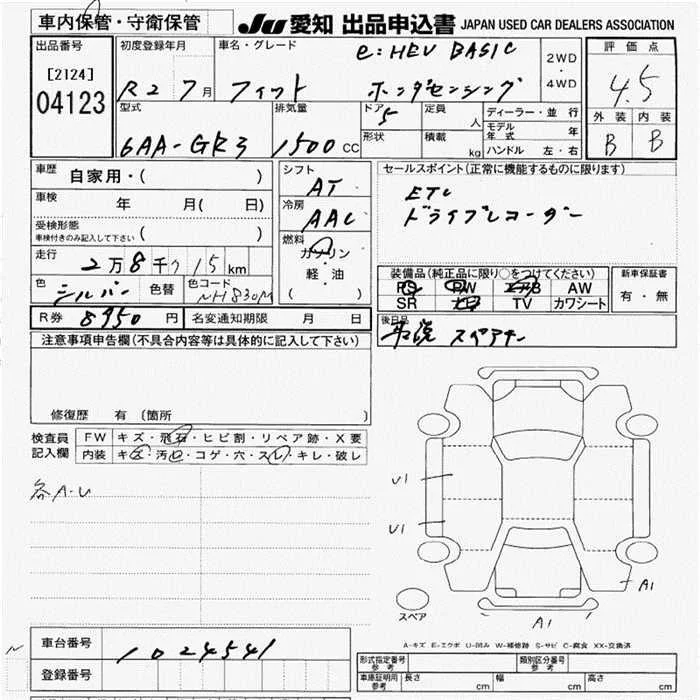 車内保管・守衛保管
JU 愛知 出品申込書 JAPAN USED CAR DEALERS ASSOCIATION
出品番号
[2124]
04123
初度登録年月
R2 7月
車名・グレード
e:HEV BASIC
フィット ホンダセンシング
2WD
・
4WD
評価点
4.5
外装 内装
B B
型式
6AA-GR3
排気量
1500 CC
ドア 5
形状
定員 人
積載 kg
ディーラー・並行
モデル年式 年
ハンドル 左・右
車歴 自家用・( )
車検 年 月( 日)
受検形態
車検付きのみ記入して下さい ( )
走行 2万8千 15km
色 シルバー 色替 色コード NH830M
シフト AT
冷房 AAC
燃料
ガソリン
・
軽・油
( )
セールスポイント(正常に機能するものに限ります)
ETC
ドライブレコーダー
装備品(純正品に限り○をつけてください)
PS PW AB AW
SR TV カワシート
新車保証書
有・無
R券 8950円 名変通知期限 月 日
後日品
スペアキー
注意事項申告欄(不具合内容等は具体的に記入して下さい)
修復歴 有 (箇所 )
検査員記入欄
FW キズ・飛石・ヒビ割・リペア跡・X要
内装 キズ・汚レ・コゲ・穴・スレ・キレ・破レ
各A・U
U1
U1
A1
A1
スペア
A-キズ E-エクボ U-凹み W-補修跡 S-サビ C-腐食 XX-交換済
車台番号 1024541
登録番号
形式指定番号 参考
類別区分番号 参考
車庫証明用 参考 長さ cm 幅 cm 高さ cm